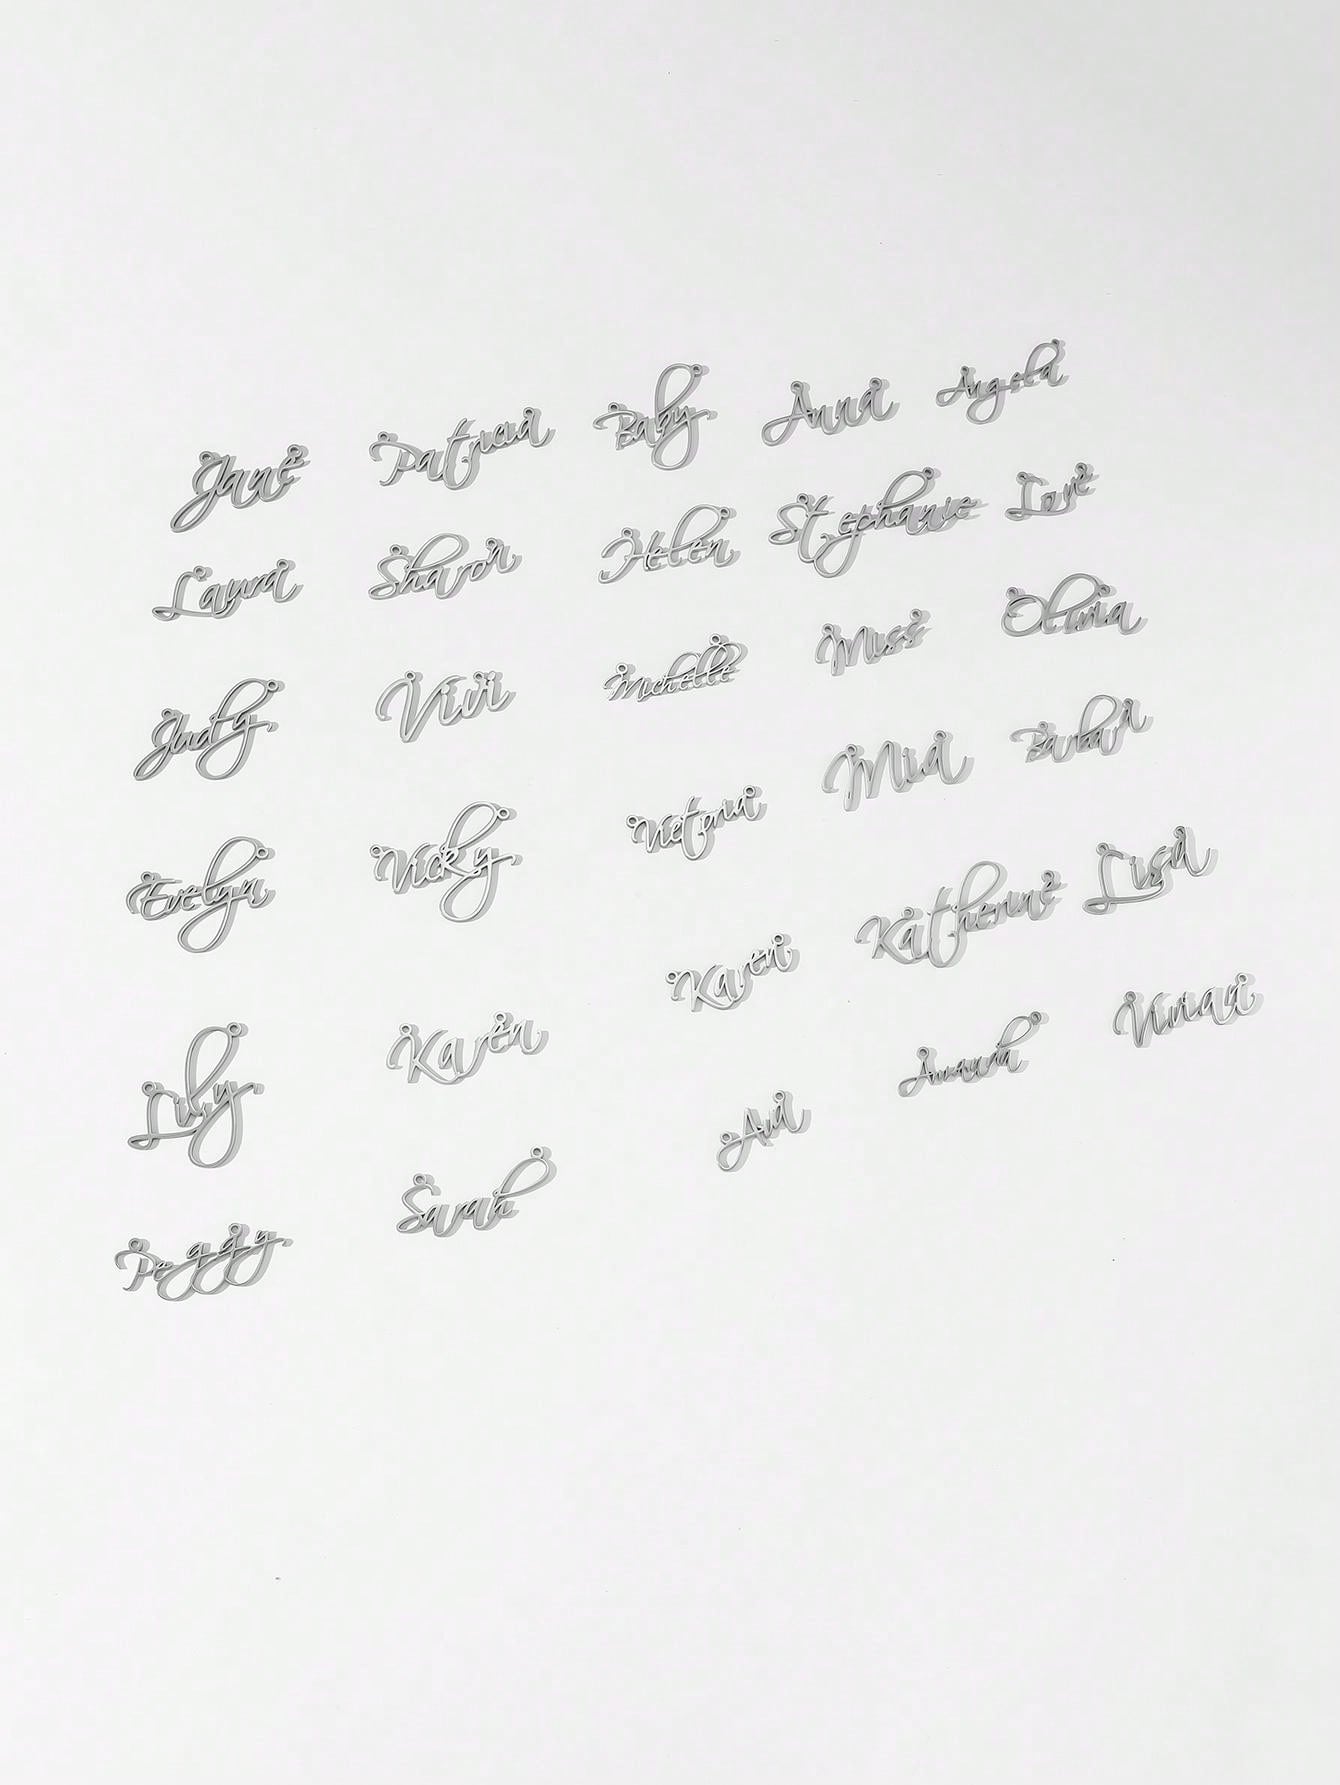 Jane Patricia Baby Anna Angela
Laura Sharon Helen Stephanie Love
Judy Vivi Michelle Miss Olivia
Evelyn Vicky Victoria Mia Barbara
Lily Karen Karen Katherine Lisa
Peggy Sarah Ava Amanda Vivian